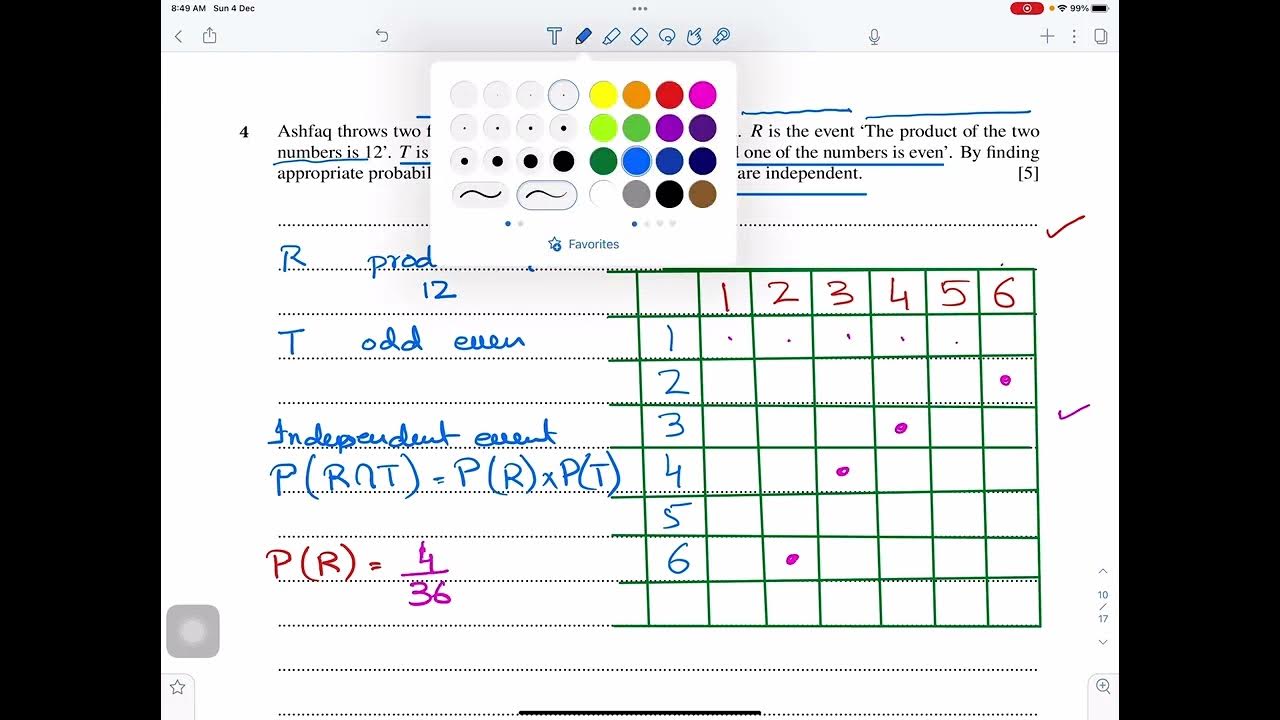 8:49 AM Sun 4 Dec
99%
T
4 Ashfaq throws two . R is the event ‘The product of the two
numbers is 12’. T is one of the numbers is even’. By finding
appropriate are independent. [5]
Favorites
R prod
12
1 2 3 4 5 6
T odd even
1
2
3
4
5
6
Independent event
P(R∩T) = P(R)×P(T)
P(R) = 4/36
10
/
17